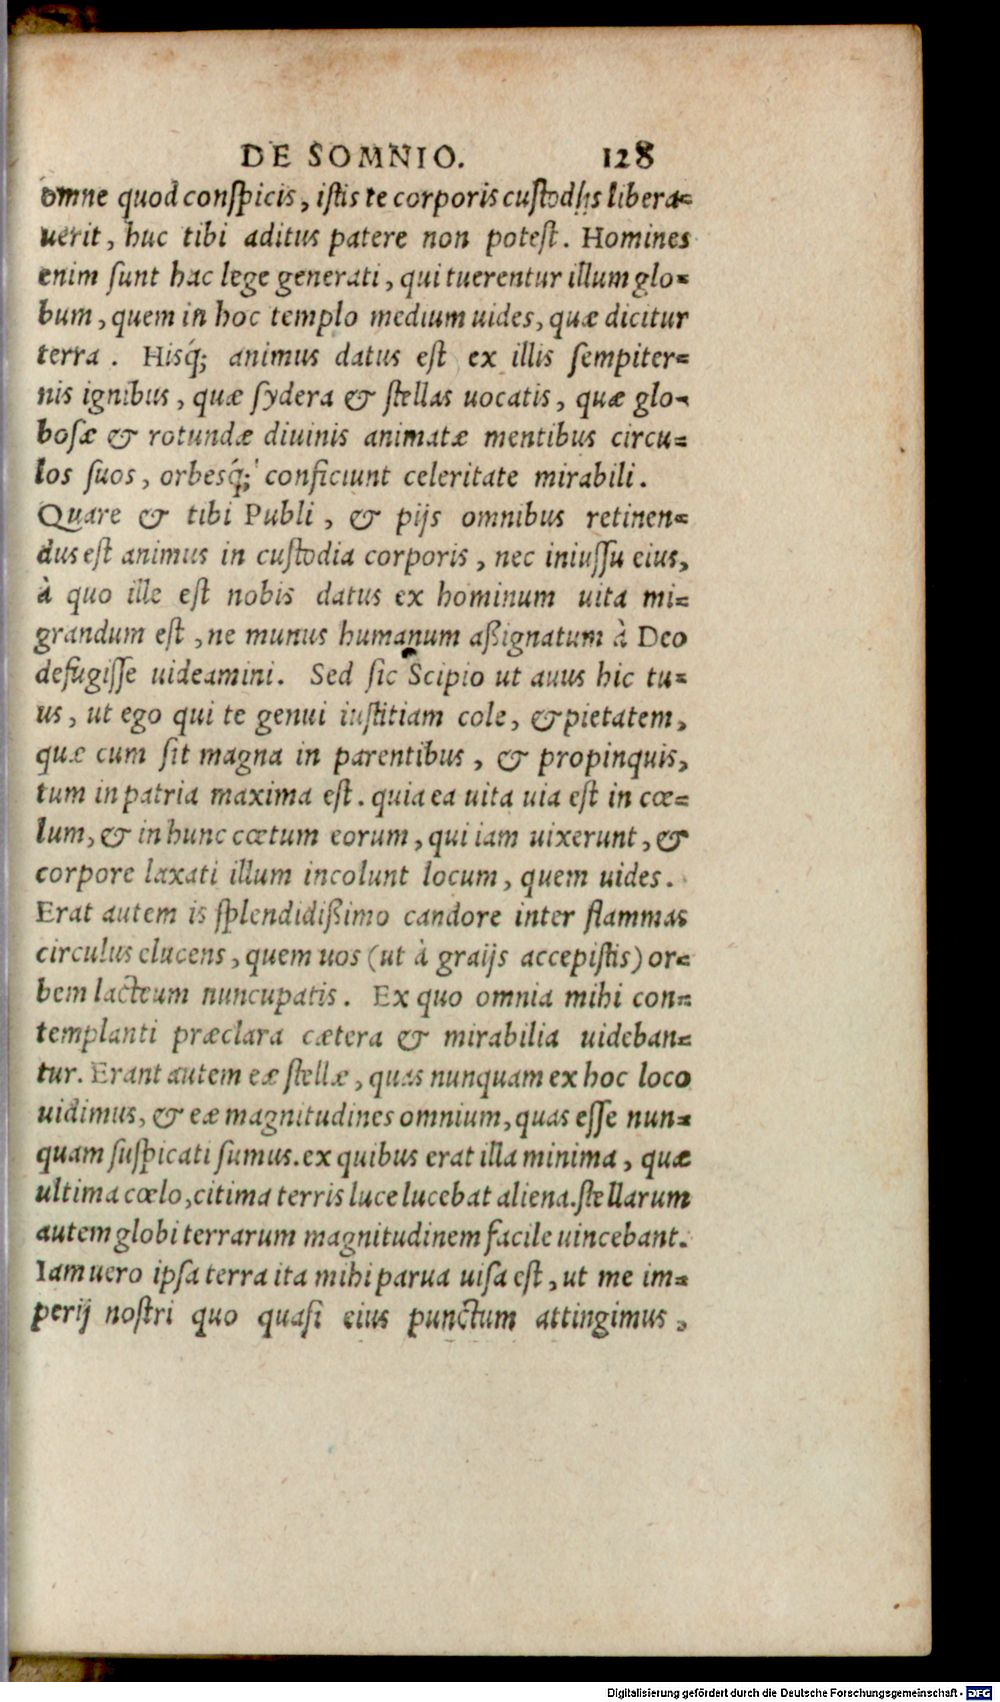 DE SOMNIO. 128
omne quod conſpicis, iſtis te corporis cuſtodijs libera=
uerit, huc tibi aditus patere non poteſt. Homines
enim ſunt hac lege generati, qui tuerentur illum glo=
bum, quem in hoc templo medium uides, quæ dicitur
terra. Hisq́; animus datus eſt ex illis ſempiter=
nis ignibus, quæ ſydera & ſtellas uocatis, quæ glo=
boſæ & rotundæ diuinis animatæ mentibus circu=
los ſuos, orbesq́; conficiunt celeritate mirabili.
Quare & tibi Publi, & pijs omnibus retinen=
dus eſt animus in cuſtodia corporis, nec iniuſſu eius,
à quo ille eſt nobis datus ex hominum uita mi=
grandum eſt, ne munus humanum aßignatum à Deo
defugiſſe uideamini. Sed ſic Scipio ut auus hic tu=
us, ut ego qui te genui iuſtitiam cole, & pietatem,
quæ cum ſit magna in parentibus, & propinquis,
tum in patria maxima eſt. quia ea uita uia eſt in cœ=
lum, & in hunc cœtum eorum, qui iam uixerunt, &
corpore laxati illum incolunt locum, quem uides.
Erat autem is ſplendidißimo candore inter flammas
circulus elucens, quem uos (ut à graijs accepiſtis) or=
bem lacteum nuncupatis. Ex quo omnia mihi con=
templanti præclara cætera & mirabilia uideban=
tur. Erant autem eæ ſtellæ, quas nunquam ex hoc loco
uidimus, & eæ magnitudines omnium, quas eſſe nun=
quam ſuſpicati ſumus. ex quibus erat illa minima, quæ
ultima cœlo, citima terris luce lucebat aliena. ſtellarum
autem globi terrarum magnitudinem facile uincebant.
Iam uero ipſa terra ita mihi parua uiſa eſt, ut me im=
perij noſtri quo quaſi eius punctum attingimus,
Digitalisierung gefördert durch die Deutsche Forschungsgemeinschaft - DFG